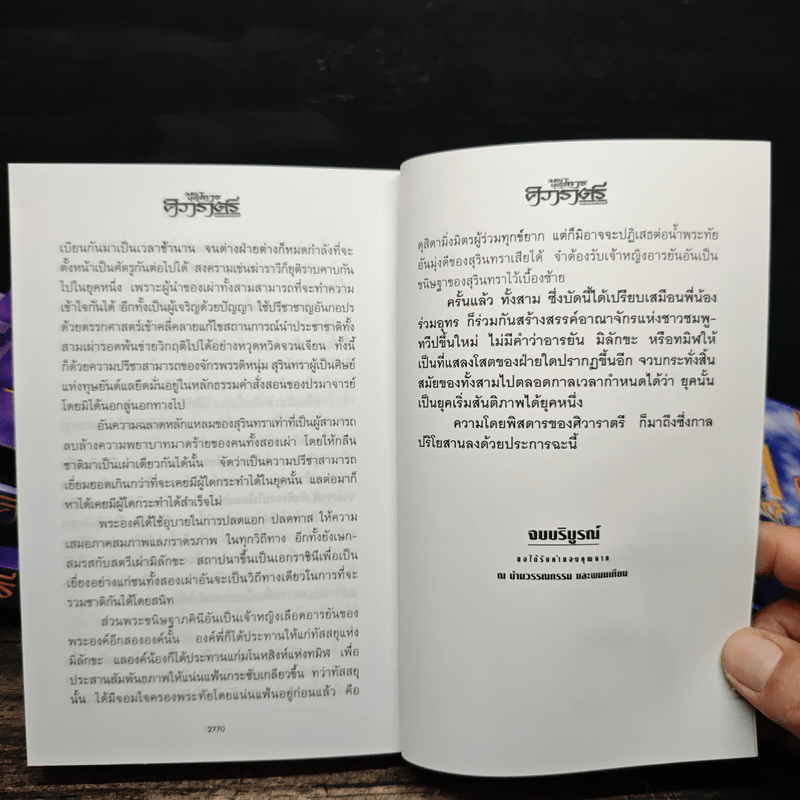 ศิวาราตรี
เบียนกันมาเป็นเวลาช้านาน จนต่างฝ่ายต่างก็หมดกำลังที่จะ
ตั้งหน้าเป็นศัตรูกันต่อไปได้ สงครามเช่นฆ่าราวีก็ยุติราบคาบกัน
ไปในยุคหนึ่ง เพราะผู้นำของเผ่าทั้งสามสามารถที่จะทำความ
เข้าใจกันได้ อีกทั้งเป็นผู้เจริญด้วยปัญญา ใช้ปรีชาชาญอันกอปร
ด้วยตรรกศาสตร์เข้าคลี่คลายแก้ไขสถานการณ์นำประชาชาติทั้ง
สามเผ่ารอดพ้นข่ายวิกฤติไปได้อย่างหวุดหวิดจวนเจียน ทั้งนี้
ก็ด้วยความปรีชาสามารถของจักรพรรดิหนุ่ม สุรินทราผู้เป็นศิษย์
แห่งทุษยันต์และยึดมั่นอยู่ในหลักธรรมคำสั่งสอนของปรมาจารย์
โดยมิได้นอกลู่นอกทางไป
อันความฉลาดหลักแหลมของสุรินทราเท่าที่เป็นผู้สามารถ
ลบล้างความพยาบาทมาดร้ายของคนทั้งสองเผ่า โดยให้กลืน
ชาติมาเป็นเผ่าเดียวกันได้นั้น จัดว่าเป็นความปรีชาสามารถ
เยี่ยมยอดเกินกว่าที่จะเคยมีผู้ใดกระทำได้ในยุคนั้น และต่อมาก็
หาได้เคยมีผู้ใดกระทำได้สำเร็จไม่
พระองค์ได้ใช้อุบายในการปลดแอก ปลดทาส ให้ความ
เสมอภาคสมภาพและภราดรภาพ ในทุกวิถีทาง อีกทั้งยังเษก-
สมรสกับสตรีเผ่ามิลักขะ สถาปนาขึ้นเป็นเอกราชินีเพื่อเป็น
เยี่ยงอย่างแก่ชนทั้งสองเผ่าอันจะเป็นวิถีทางเดียวในการที่จะ
รวมชาติกันได้โดยสนิท
ส่วนพระขนิษฐาภคินีอันเป็นเจ้าหญิงเลือดอารยันของ
พระองค์อีกสององค์นั้น องค์พี่ก็ได้ประทานให้แก่ทัสสยุแห่ง
มิลักขะ และองค์น้องก็ได้ประทานแก่มโนหสิงห์แห่งทมิฬ เพื่อ
ประสานสัมพันธภาพให้แน่นแฟ้นกระชับเกลียวขึ้น ทว่าทัสสยุ
นั้น ได้มีจอมใจครองพระทัยโดยแน่นแฟ้นอยู่ก่อนแล้ว คือ
2770
ศิวาราตรี
ดุสิตามิ่งมิตรผู้ร่วมทุกข์ยาก แต่ก็มิอาจจะปฏิเสธต่อน้ำพระทัย
อันมุ่งดีของสุรินทราเสียได้ จำต้องรับเจ้าหญิงอารยันอันเป็น
ขนิษฐาของสุรินทราไว้เบื้องซ้าย
ครั้นแล้ว ทั้งสาม ซึ่งบัดนี้ได้เปรียบเสมือนพี่น้อง
ร่วมอุทร ก็ร่วมกันสร้างสรรค์อาณาจักรแห่งชาวชมพู-
ทวีปขึ้นใหม่ ไม่มีคำว่าอารยัน มิลักขะ หรือทมิฬให้
เป็นที่แสลงโสตของฝ่ายใดปรากฏขึ้นอีก จวบกระทั่งสิ้น
สมัยของทั้งสามไปตลอดกาลเวลากำหนดได้ว่า ยุคนั้น
เป็นยุคเริ่มสันติภาพได้ยุคหนึ่ง
ความโดยพิสดารของศิวาราตรี ก็มาถึงซึ่งกาล
ปริโยสานลงด้วยประการฉะนี้
จบบริบูรณ์
ขอได้รับคำขอบคุณจาก
ณ บ้านวรรณกรรม และพนมเทียน